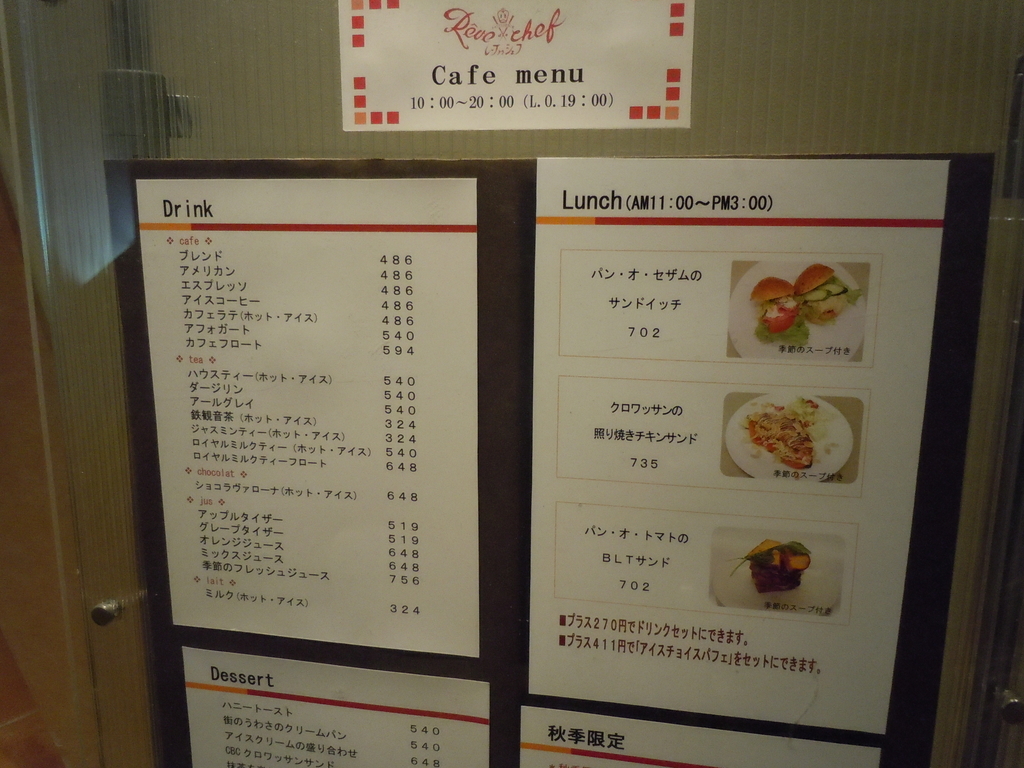 Rêve chef
Cafe menu
10:00～20:00 (L.O.19:00)
Drink
❖ cafe ❖
ブレンド 486
アメリカン 486
エスプレッソ 486
アイスコーヒー 486
カフェラテ(ホット・アイス) 486
アフォガート 540
カフェフロート 594
❖ tea ❖
ハウスティー(ホット・アイス) 540
ダージリン 540
アールグレイ 540
鉄観音茶 (ホット・アイス) 324
ジャスミンティー(ホット・アイス) 324
ロイヤルミルクティー (ホット・アイス) 540
ロイヤルミルクティーフロート 648
❖ chocolat ❖
ショコラヴァローナ(ホット・アイス) 648
❖ jus ❖
アップルタイザー 519
グレープタイザー 519
オレンジジュース 648
ミックスジュース 648
季節のフレッシュジュース 756
❖ lait ❖
ミルク(ホット・アイス) 324
Dessert
ハニートースト 540
街のうわさのクリームパン 540
アイスクリームの盛り合わせ 648
CBCクロワッサンサンド
Lunch(AM11:00～PM3:00)
パン・オ・セザムの
サンドイッチ
702
季節のスープ付き
クロワッサンの
照り焼きチキンサンド
735
季節のスープ付き
パン・オ・トマトの
BLTサンド
702
季節のスープ付き
■プラス270円でドリンクセットにできます。
■プラス411円で「アイスチョイスパフェ」をセットにできます。
秋季限定